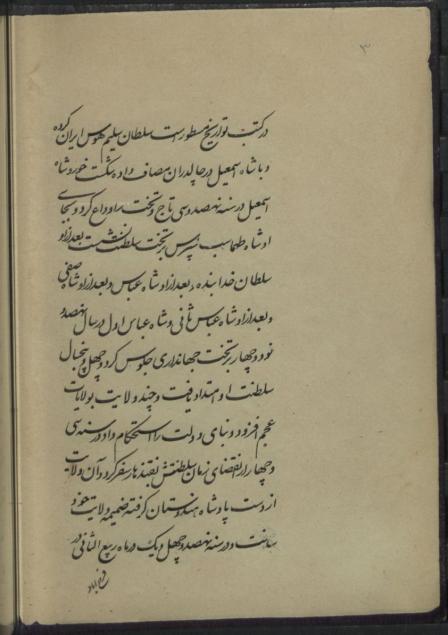 ۳
در کتب تواریخ مسطور است سلطان سلیم هوس ایران کرده
و با شاه اسمعیل در چالدران مصاف داده شکست خورد و شاه
اسمعیل در سنه نهصد و سی تاج و تخت را وداع کرد و بجای
او شاه طهماسب پسرش بر تخت سلطنت نشست بعد از او
سلطان خدابنده و بعد از او شاه عباس و بعد از او شاه صفی
و بعد از او شاه عباس ثانی و شاه عباس اول در سال نهصد و
نود و چهار بر تخت جهانداری جلوس کرد و چهل و پنجسال
سلطنت او امتداد یافت و چند ولایت بولایات
عجم افزود و بنای دولت را استحکام داد و در سنه سی
و چهار از انقضای زمان سلطنتش بقندهار سفر کرد و آن ولایت
از دست پادشاه هندوستان گرفته ضمیمه ولایت خود
ساخت و در سنه نهصد و چهل و یک در ماه ربیع الثانی در